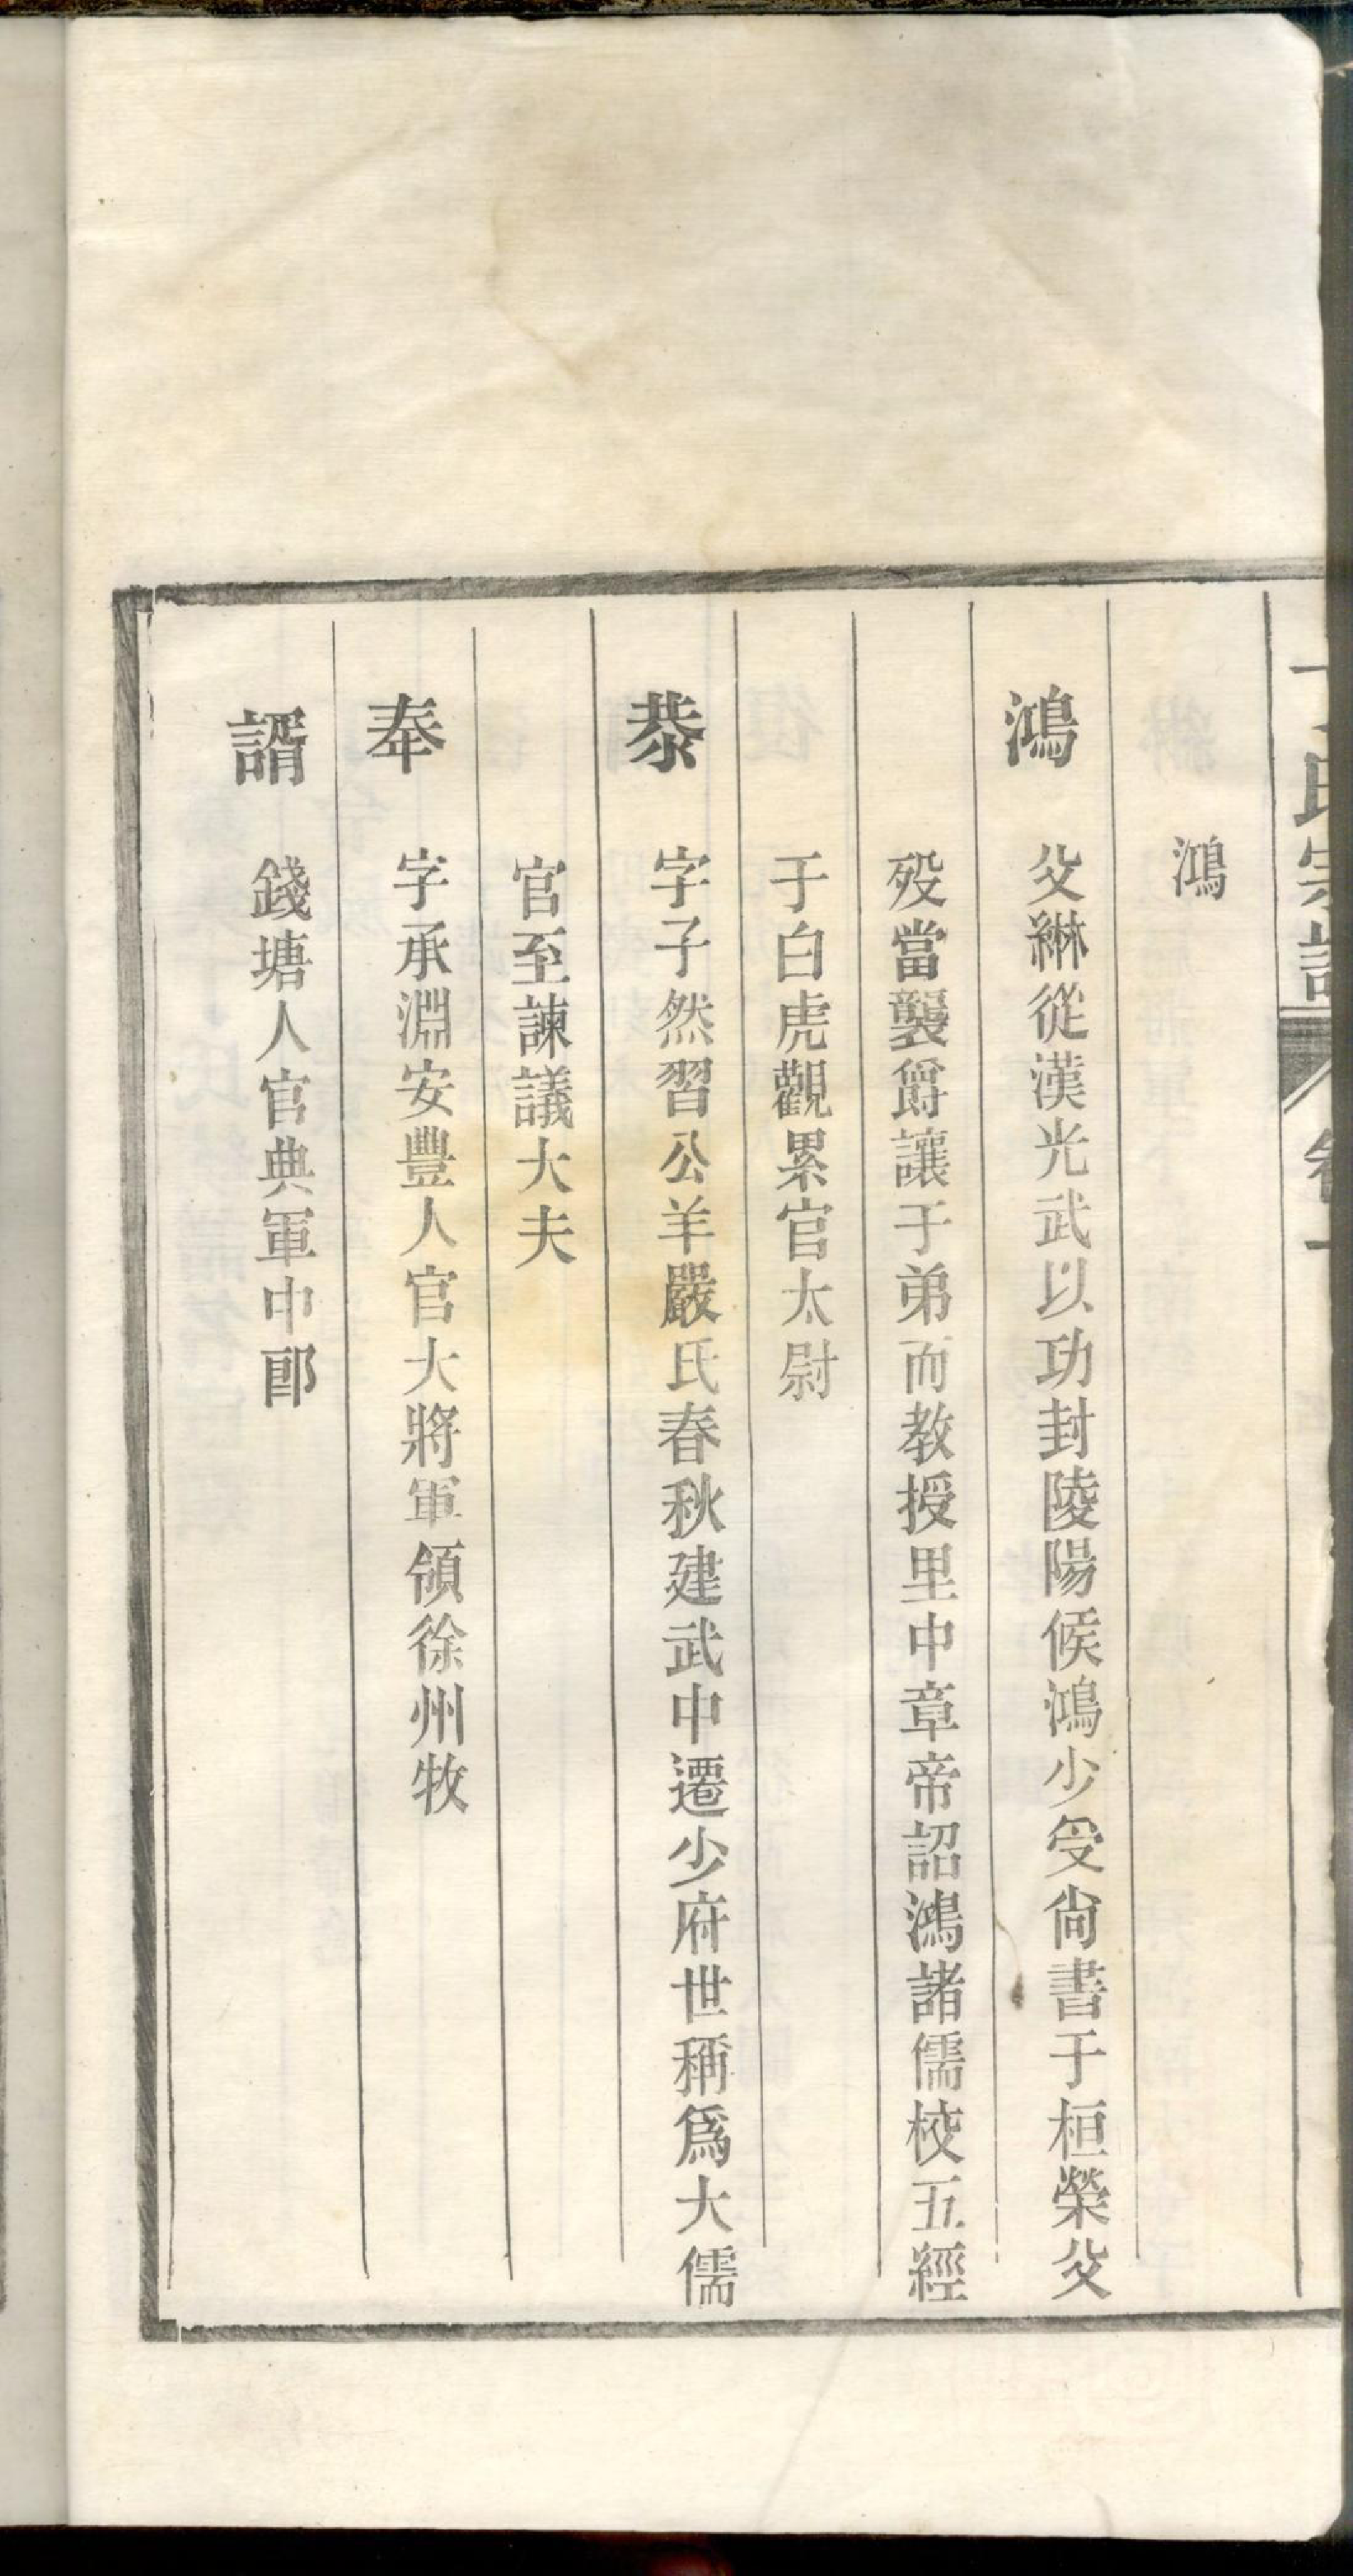 丁氏宗譜 卷一
鴻
鴻 父綝從漢光武以功封陵陽侯鴻少受尙書于桓榮父
歿當襲爵讓于弟而教授里中章帝詔鴻諸儒校五經
于白虎觀累官太尉
恭 字子然習公羊嚴氏春秋建武中遷少府世稱爲大儒
官至諫議大夫
奉 字承淵安豐人官大將軍領徐州牧
諝 錢塘人官典軍中郎